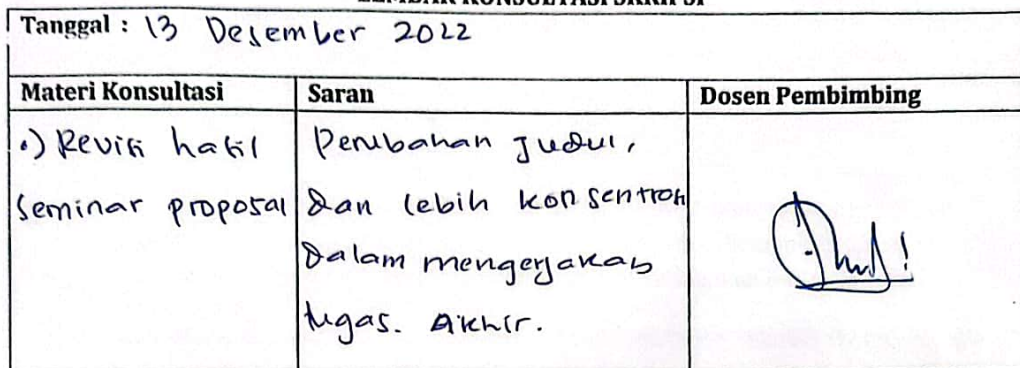 LEMBAR KONSULTASI SKRIPSI
Tanggal : 13 Desember 2022
Materi Konsultasi Saran Dosen Pembimbing
•) Revisi hasil
seminar proposal
Perubahan Judul,
dan lebih konsentrasi
dalam mengerjakan
tugas. Akhir.